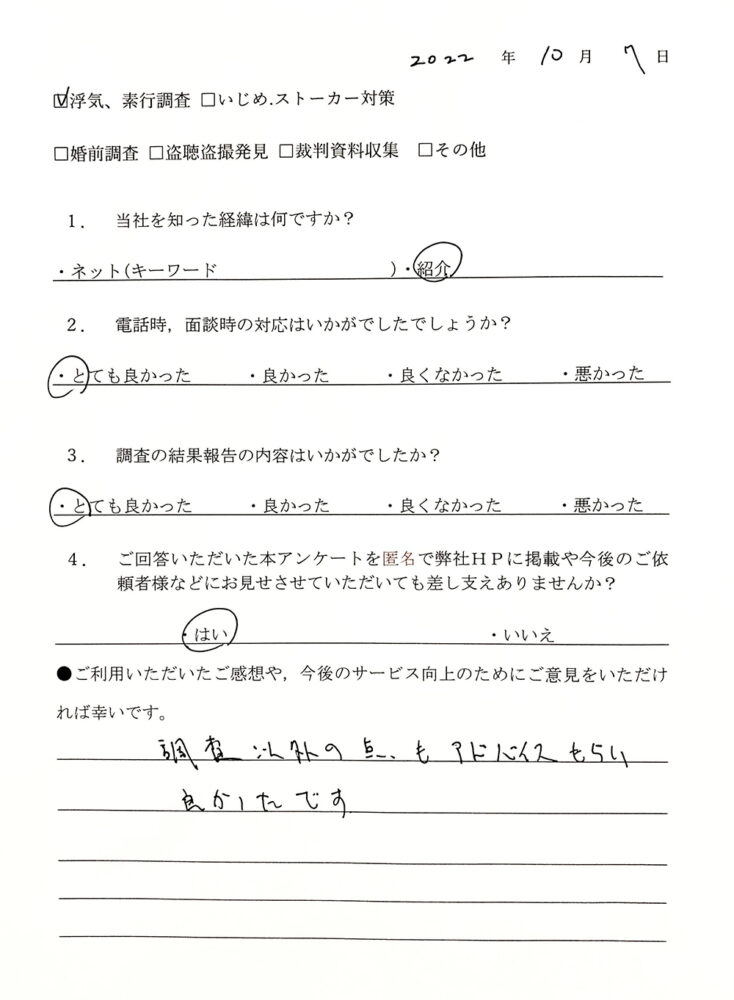 2022 年 10 月 7 日
☑浮気、素行調査 □いじめ.ストーカー対策
□婚前調査 □盗聴盗撮発見 □裁判資料収集 □その他
1. 当社を知った経緯は何ですか？
・ネット(キーワード )・紹介
2. 電話時，面談時の対応はいかがでしたでしょうか？
・とても良かった ・良かった ・良くなかった ・悪かった
3. 調査の結果報告の内容はいかがでしたか？
・とても良かった ・良かった ・良くなかった ・悪かった
4. ご回答いただいた本アンケートを匿名で弊社ＨＰに掲載や今後のご依
頼者様などにお見せさせていただいても差し支えありませんか？
・はい ・いいえ
●ご利用いただいたご感想や，今後のサービス向上のためにご意見をいただけ
れば幸いです。
調査以外の点もアドバイスもらい
良かったです